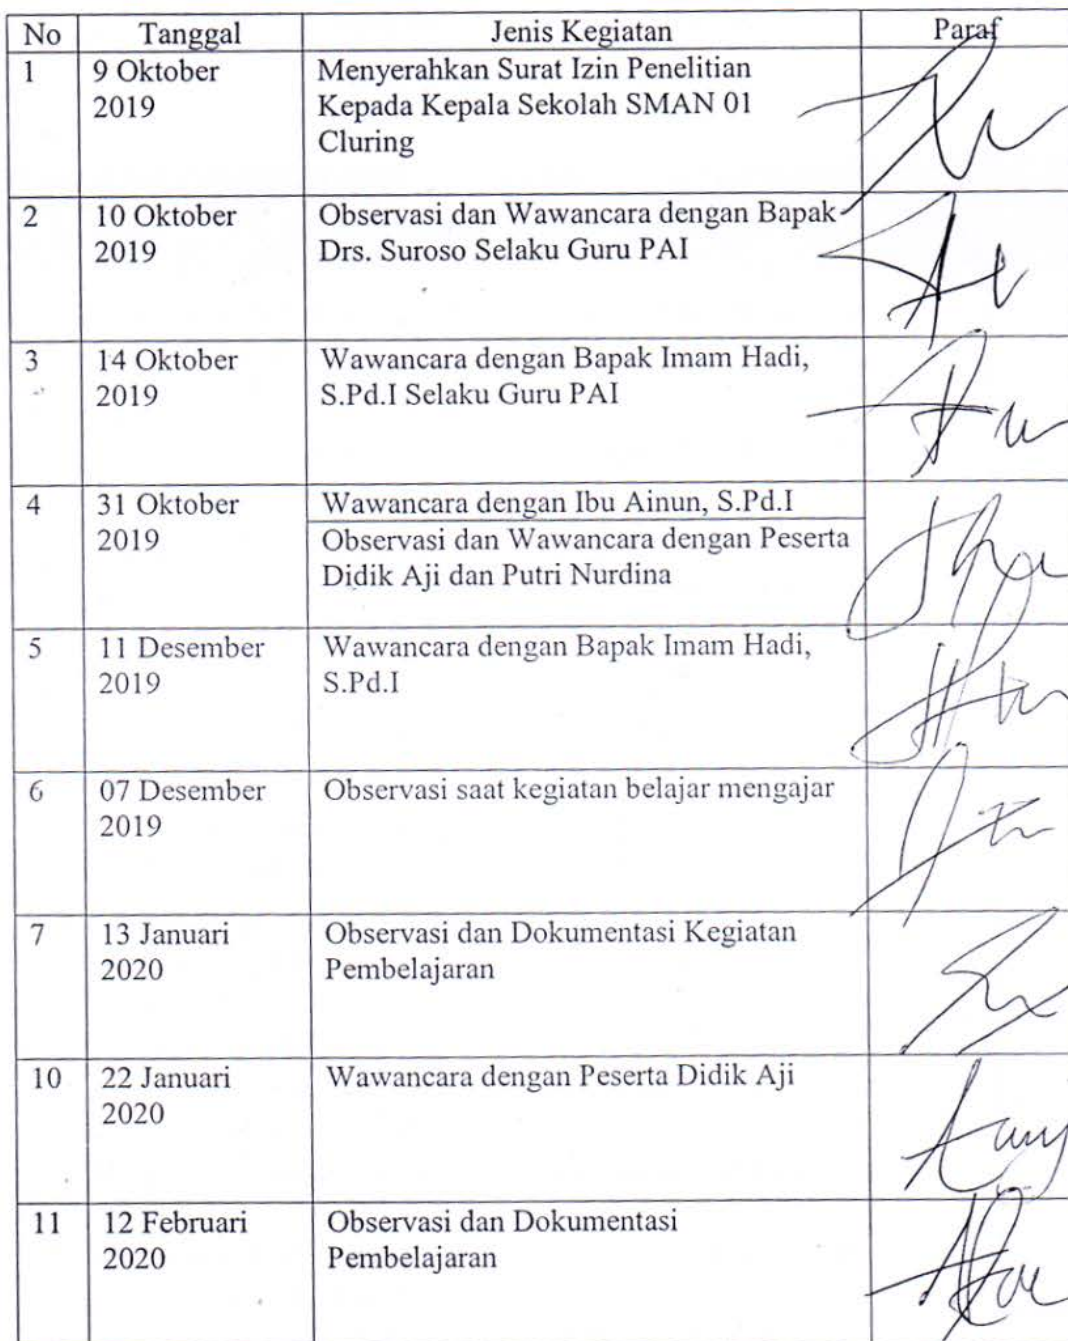 No Tanggal Jenis Kegiatan Paraf
1 9 Oktober Menyerahkan Surat Izin Penelitian
2019 Kepada Kepala Sekolah SMAN 01
Cluring
2 10 Oktober Observasi dan Wawancara dengan Bapak
2019 Drs. Suroso Selaku Guru PAI
3 14 Oktober Wawancara dengan Bapak Imam Hadi,
2019 S.Pd.I Selaku Guru PAI
4 31 Oktober Wawancara dengan Ibu Ainun, S.Pd.I
2019 Observasi dan Wawancara dengan Peserta
Didik Aji dan Putri Nurdina
5 11 Desember Wawancara dengan Bapak Imam Hadi,
2019 S.Pd.I
6 07 Desember Observasi saat kegiatan belajar mengajar
2019
7 13 Januari Observasi dan Dokumentasi Kegiatan
2020 Pembelajaran
10 22 Januari Wawancara dengan Peserta Didik Aji
2020
11 12 Februari Observasi dan Dokumentasi
2020 Pembelajaran